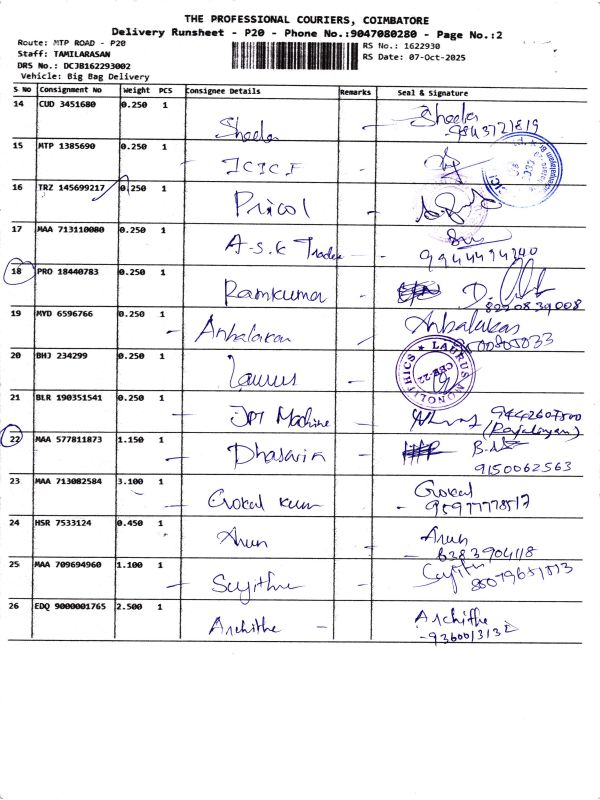 THE PROFESSIONAL COURIERS, COIMBATORE
Delivery Runsheet - P20 - Phone No.:9047080280 - Page No.:2
Route: MTP ROAD - P20
RS No.: 1622930
Staff: TAMILARASAN
RS Date: 07-Oct-2025
DRS No.: DCJB162293002
Vehicle: Big Bag Delivery
S No Consignment No Weight PCS Consignee Details Remarks Seal & Signature
14 CUD 3451680 0.250 1 Sheela - Sheela
9843721819
15 MTP 1385690 0.250 1 - ICICI -
16 TRZ 145699217 0.250 1 Pricol -
17 MAA 713110080 0.250 1 A-S-K Traders -
9944494340
18 PRO 18440783 0.250 1 Ramkumar -
8220839008
19 MYD 6596766 0.250 1 - Anbalakan Anbalakan
20 BHJ 234299 0.250 1 Laurus -
LAURUS MONOLITHICS
CBE-22
21 BLR 190351541 0.250 1 - JPT Machine 9442607800
(Rajaliyan)
22 MAA 577811873 1.150 1 - Dhasarin
9150062563
23 MAA 713082584 3.100 1 - Gokul kum Gokul
24 HSR 7533124 0.450 1 - Arun Arun
- 6383904118
25 MAA 709694960 1.100 1 - Sujitha
26 EDQ 9000001765 2.500 1 Archithe - Archithe